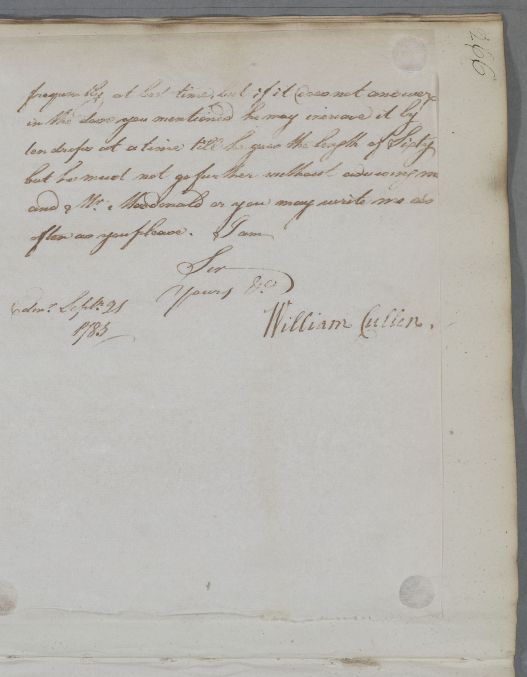 266
frequently at bed time, but if it does not answer
in the dose you mentioned he may increase it by
ten drops at a time till he goes the length of Sixty
but he must not go further without advising me
and Mr. Macdonald or you may write me as
often as you please. I am
Sir
Yours &c
Edinr. Septr. 21
1783
William Cullen.